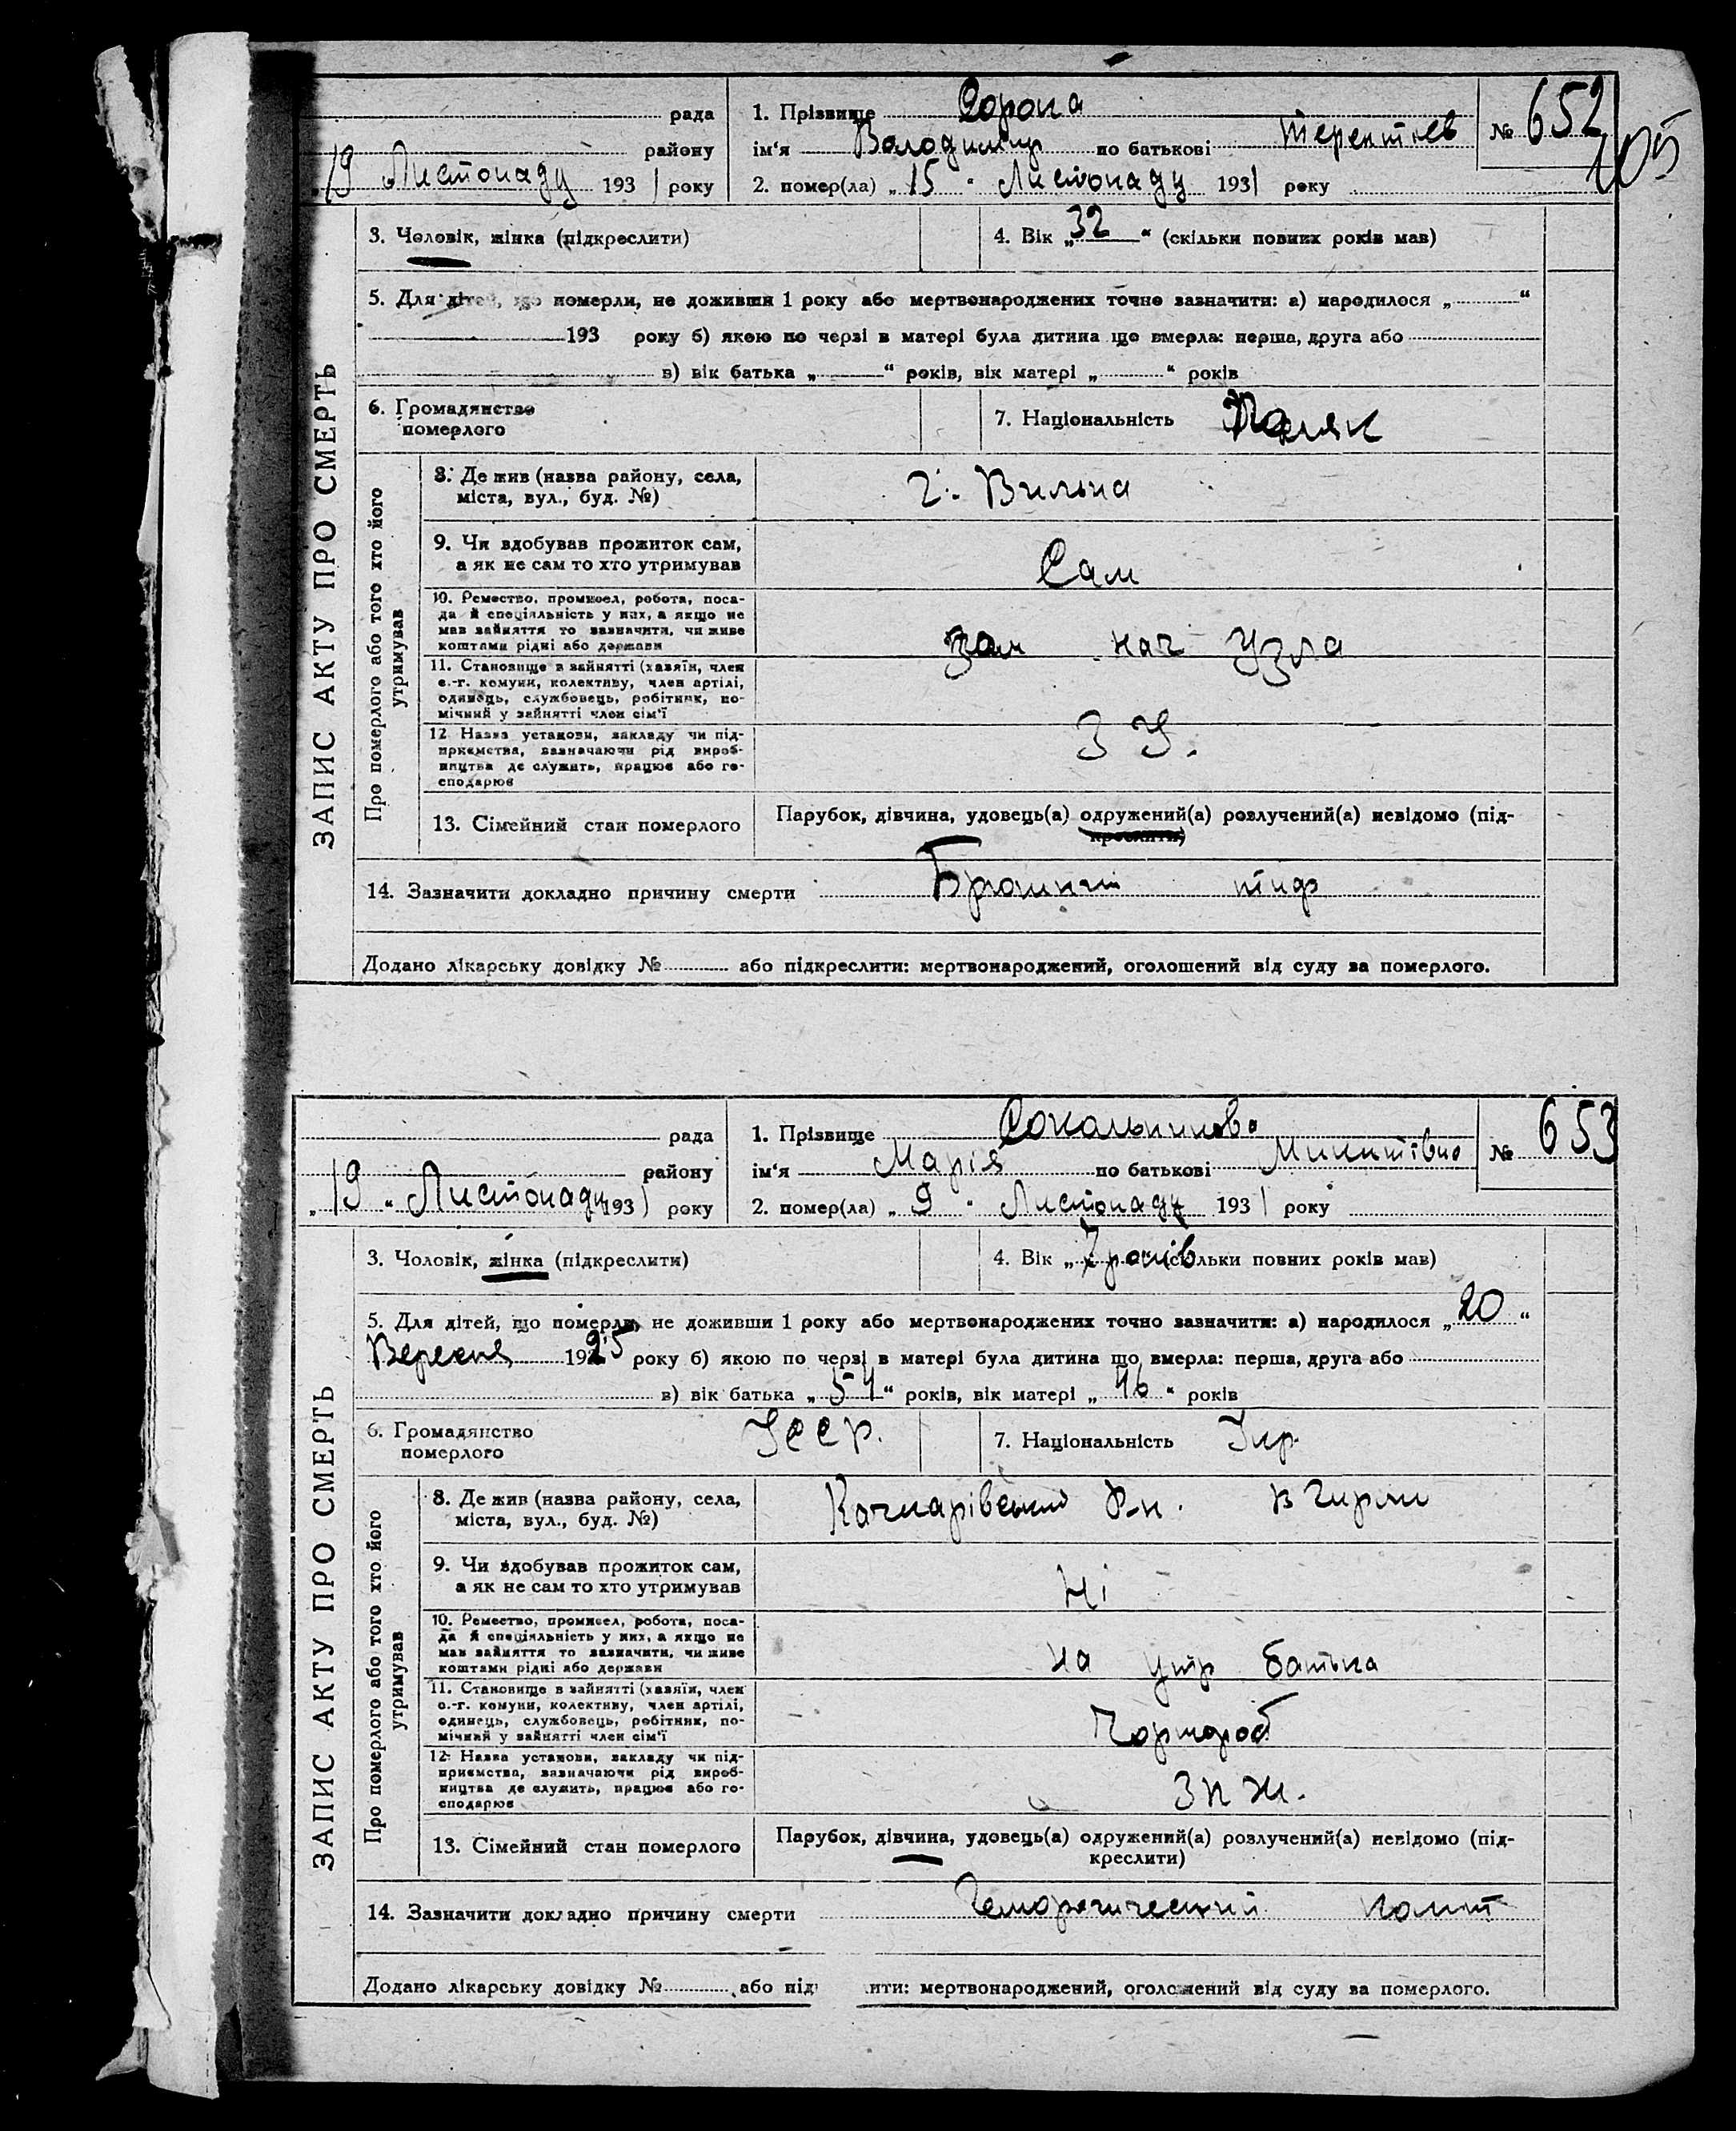 рада
району
19 Листопаду 1931 року
1. Прізвище Сорока
ім'я Володимир по батькові Терентьев
2. помер(ла) „15" Листопаду 1931 року
№ 652
105
ЗАПИС АКТУ ПРО СМЕРТЬ
3. Чоловік, жінка (підкреслити)
4. Вік „32" (скільки повних років мав)
5. Для дітей, що померли, не доживши 1 року або мертвонароджених точно зазначити: а) народилося „ "
193 року б) якою по черзі в матері була дитина що вмерла: перша, друга або
в) вік батька „ " років, вік матері „ " років
6. Громадянство
померлого
7. Національність Поляк
Про померлого або того хто його
утримував
8. Де жив (назва району, села,
міста, вул., буд. №)
г. Вильна
9. Чи здобував прожиток сам,
а як не сам то хто утримував
Сам
10. Ремество, промисел, робота, поса-
да й спеціяльність у них, а якщо не
мав зайняття то зазначити, чи живе
коштами рідні або держави
зам нач узла
11. Становище в зайнятті (хазяїн, член
с.-г. комуни, колективу, член артілі,
одинець, службовець, робітник, по-
мічний у зайнятті член сім'ї
12 Назва установи, закладу чи під-
приємства, зазначаючи рід вироб-
ництва де служить, працює або го-
сподарює
З У.
13. Сімейний стан померлого
Парубок, дівчина, удовець(а) одружений(а) розлучений(а) невідомо (під-
креслити)
14. Зазначити докладно причину смерти Брюшний тиф
Додано лікарську довідку № або підкреслити: мертвонароджений, оголошений від суду за померлого.
рада
району
„19" Листопаду 1931 року
1. Прізвище Сокальникова
ім'я Марія по батькові Микитівна
2. помер(ла) „9" Листопаду 1931 року
№ 653
ЗАПИС АКТУ ПРО СМЕРТЬ
3. Чоловік, жінка (підкреслити)
4. Вік „7 років (скільки повних років мав)
5. Для дітей, що померли, не доживши 1 року або мертвонароджених точно зазначити: а) народилося „20"
Вересня 1925 року б) якою по черзі в матері була дитина що вмерла: перша, друга або
в) вік батька „54" років, вік матері „46" років
6. Громадянство
померлого
УССР.
7. Національність Укр.
Про померлого або того хто його
утримував
8. Де жив (назва району, села,
міста, вул., буд. №)
Качкарівський Р-н.
9. Чи здобував прожиток сам,
а як не сам то хто утримував
Ні
10. Ремество, промисел, робота, поса-
да й спеціяльність у них, а якщо не
мав зайняття то зазначити, чи живе
коштами рідні або держави
на утр батька
11. Становище в зайнятті (хазяїн, член
с.-г. комуни, колективу, член артілі,
одинець, службовець, робітник, по-
мічний у зайнятті член сім'ї
Чорнороб
12. Назва установи, закладу чи під-
приємства, зазначаючи рід вироб-
ництва де служить, працює або го-
сподарює
13. Сімейний стан померлого
Парубок, дівчина, удовець(а) одружений(а) розлучений(а) невідомо (під-
креслити)
14. Зазначити докладно причину смерти Геморогический колит
Додано лікарську довідку № або під ити: мертвонароджений, оголошений від суду за померлого.